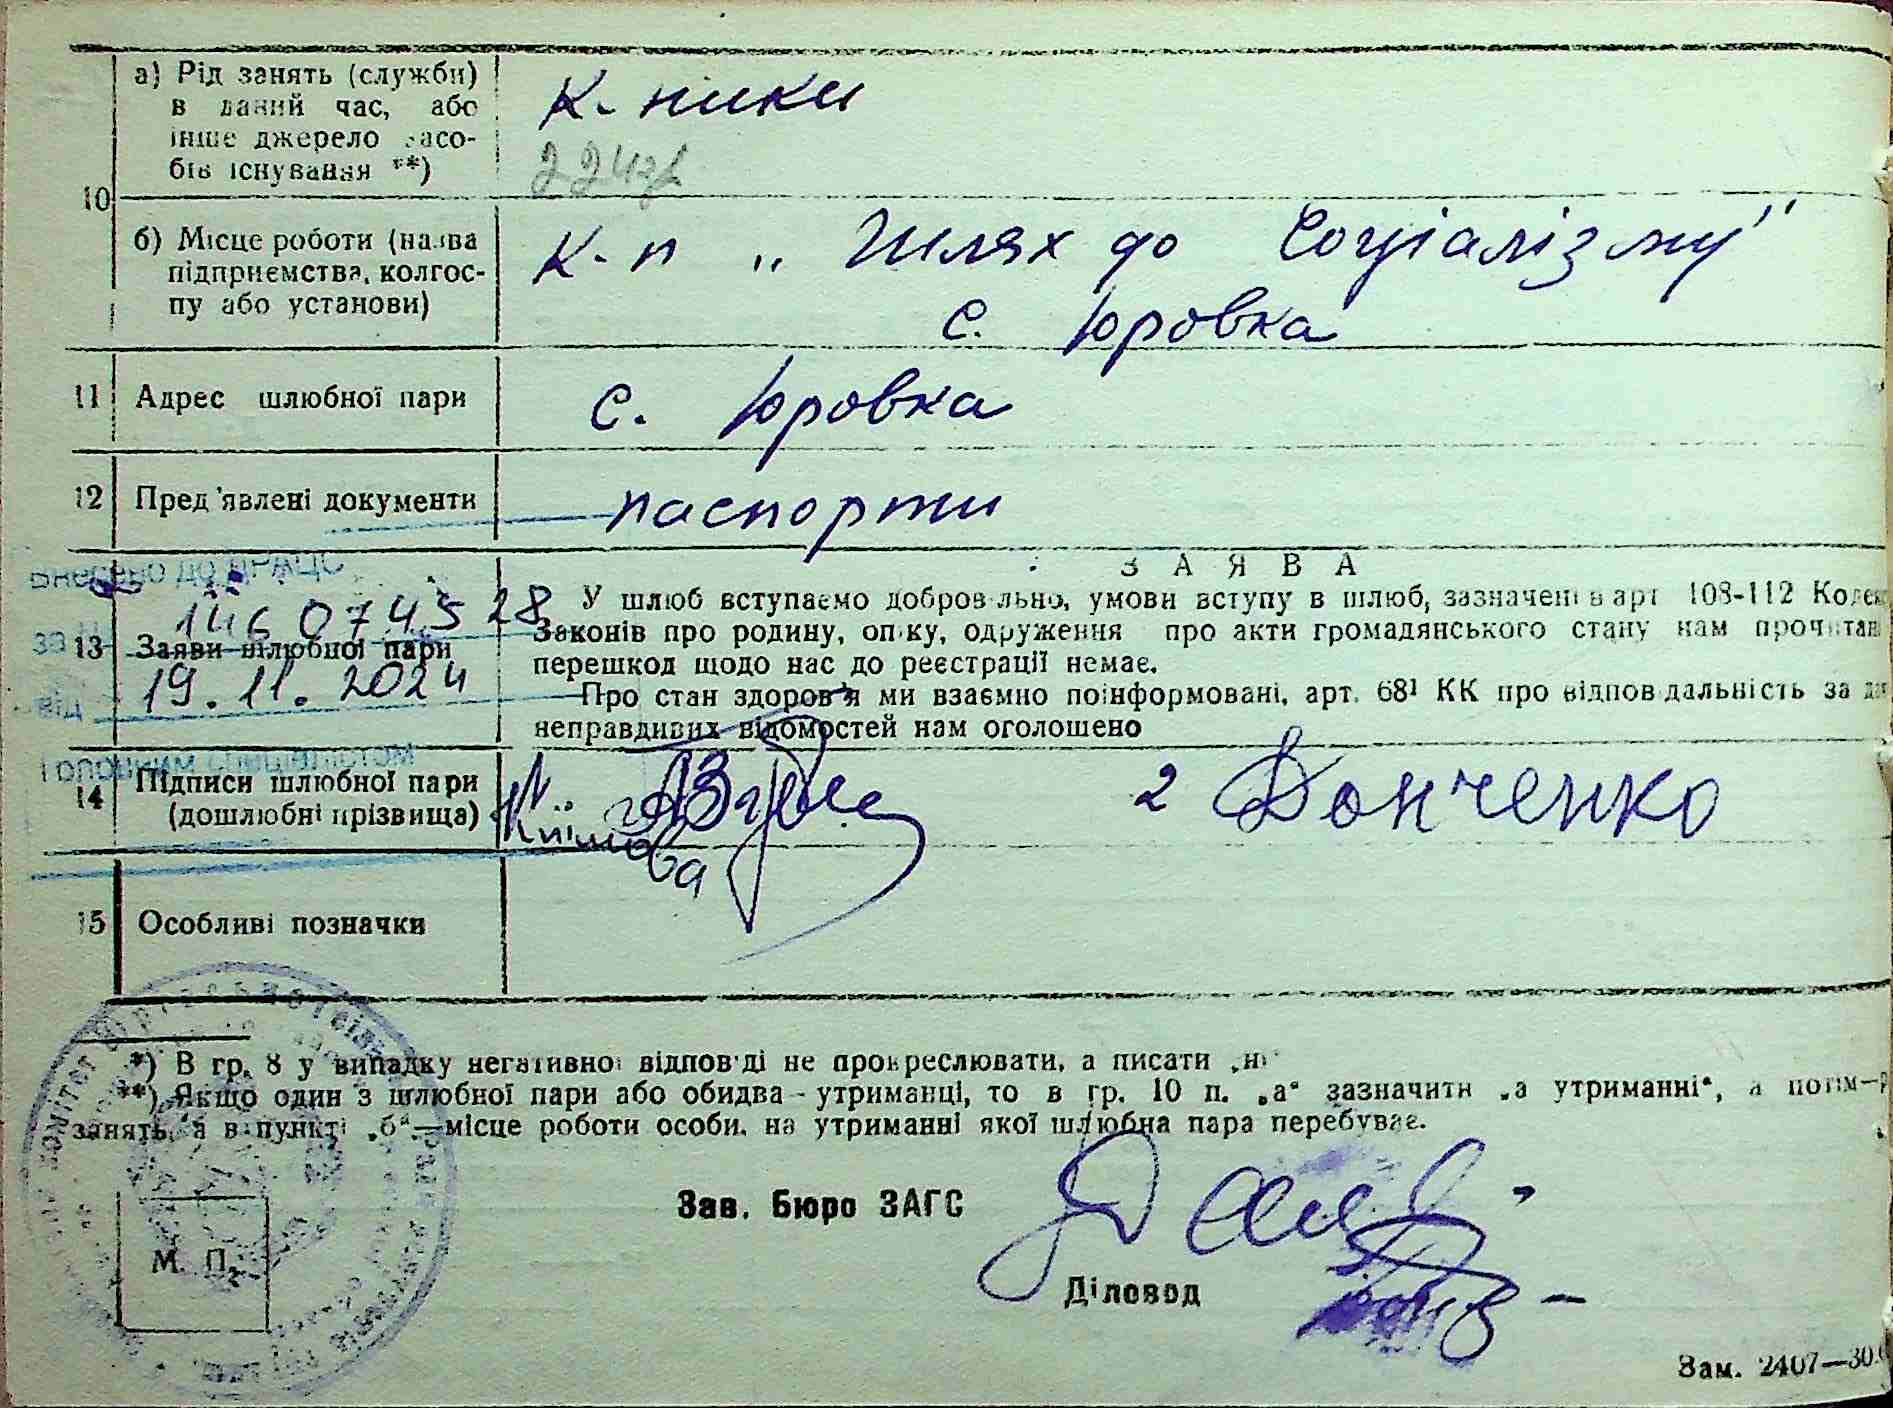 а) Рід занять (служби)
в даний час, або
інше джерело засо-
бів існування **)
К. ники
10
б) Місце роботи (назва
підприємства, колгос-
пу або установи)
К-п „Шлях до Соціалізму"
с. Юровка
11 Адрес шлюбної пари
с. Юровка
12 Пред'явлені документи
паспорти
Внесено до ДРАЦС
за №
13 Заяви шлюбної пари
19.11.2024
від
ЗАЯВА
У шлюб вступаємо добровільно, умови вступу в шлюб, зазначені в арт 108-112
Законів про родину, опіку, одруження про акти громадянського стану нам
перешкод щодо нас до реєстрації немає.
Про стан здоров'я ми взаємно поінформовані, арт. 68¹ КК про відповідальність за
неправдивих відомостей нам оголошено
Головним спеціалістом
14 Підписи шлюбної пари
(дошлюбні прізвища)
2 Донченко
15 Особливі позначки
*) В гр. 8 у випадку негативної відповіді не прокреслювати, а писати
**) Якщо один з шлюбної пари або обидва - утриманці, то в гр. 10 п. „а" зазначити „а утриманні", а
занять, а в пункті „б"—місце роботи особи, на утриманні якої шлюбна пара перебуває.
Зав. Бюро ЗАГС
М. П.
Діловод
Зам. 2407—30